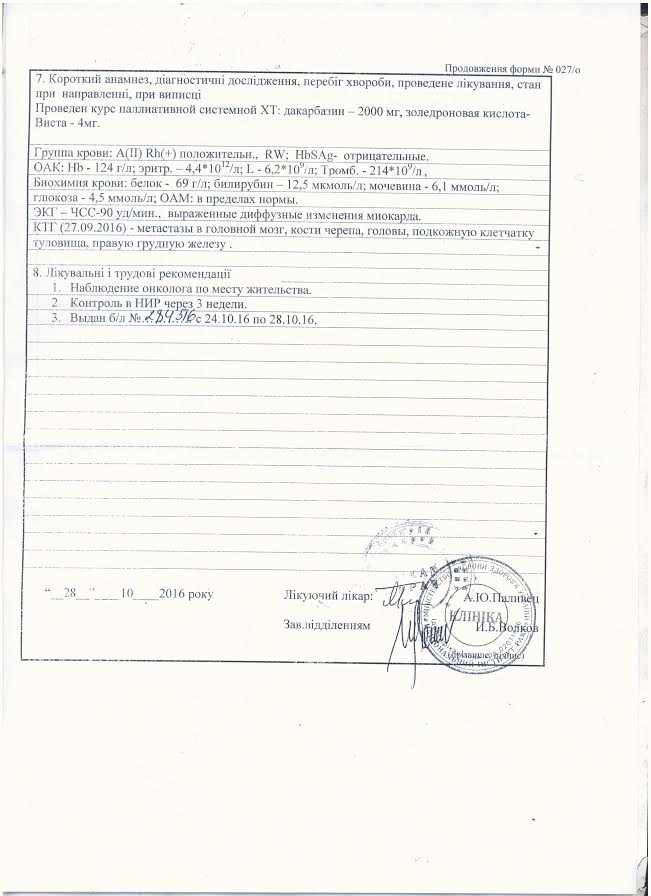 Продовження форми № 027/о
7. Короткий анамнез, діагностичні дослідження, перебіг хвороби, проведене лікування, стан
при направленні, при виписці
Проведен курс паллиативной системной ХТ: дакарбазин – 2000 мг, золедроновая кислота-
Виста - 4мг.
Группа крови: А(II) Rh(+) положительн., RW; HbSAg- отрицательные.
ОАК: Hb - 124 г/л; эритр. – 4,4*10¹²/л; L - 6,2*10⁹/л; Тромб. - 214*10⁹/л ,
Биохимия крови: белок - 69 г/л; билирубин – 12,5 мкмоль/л; мочевина - 6,1 ммоль/л;
глюкоза - 4,5 ммоль/л; ОАМ: в пределах нормы.
ЭКГ – ЧСС-90 уд/мин., выраженные диффузные изменения миокарда.
КТГ (27.09.2016) - метастазы в головной мозг, кости черепа, головы, подкожную клетчатку
туловища, правую грудную железу .
8. Лікувальні і трудові рекомендації
1. Наблюдение онколога по месту жительства.
2. Контроль в НИР через 3 недели.
3. Выдан б/л № 284516 с 24.10.16 по 28.10.16.
“__28__” ____ 10 ____2016 року
Лікуючий лікар: А.Ю.Паливец
Зав.відділенням И.Б.Волков
КЛІНІКА
(прізвище, підпис)